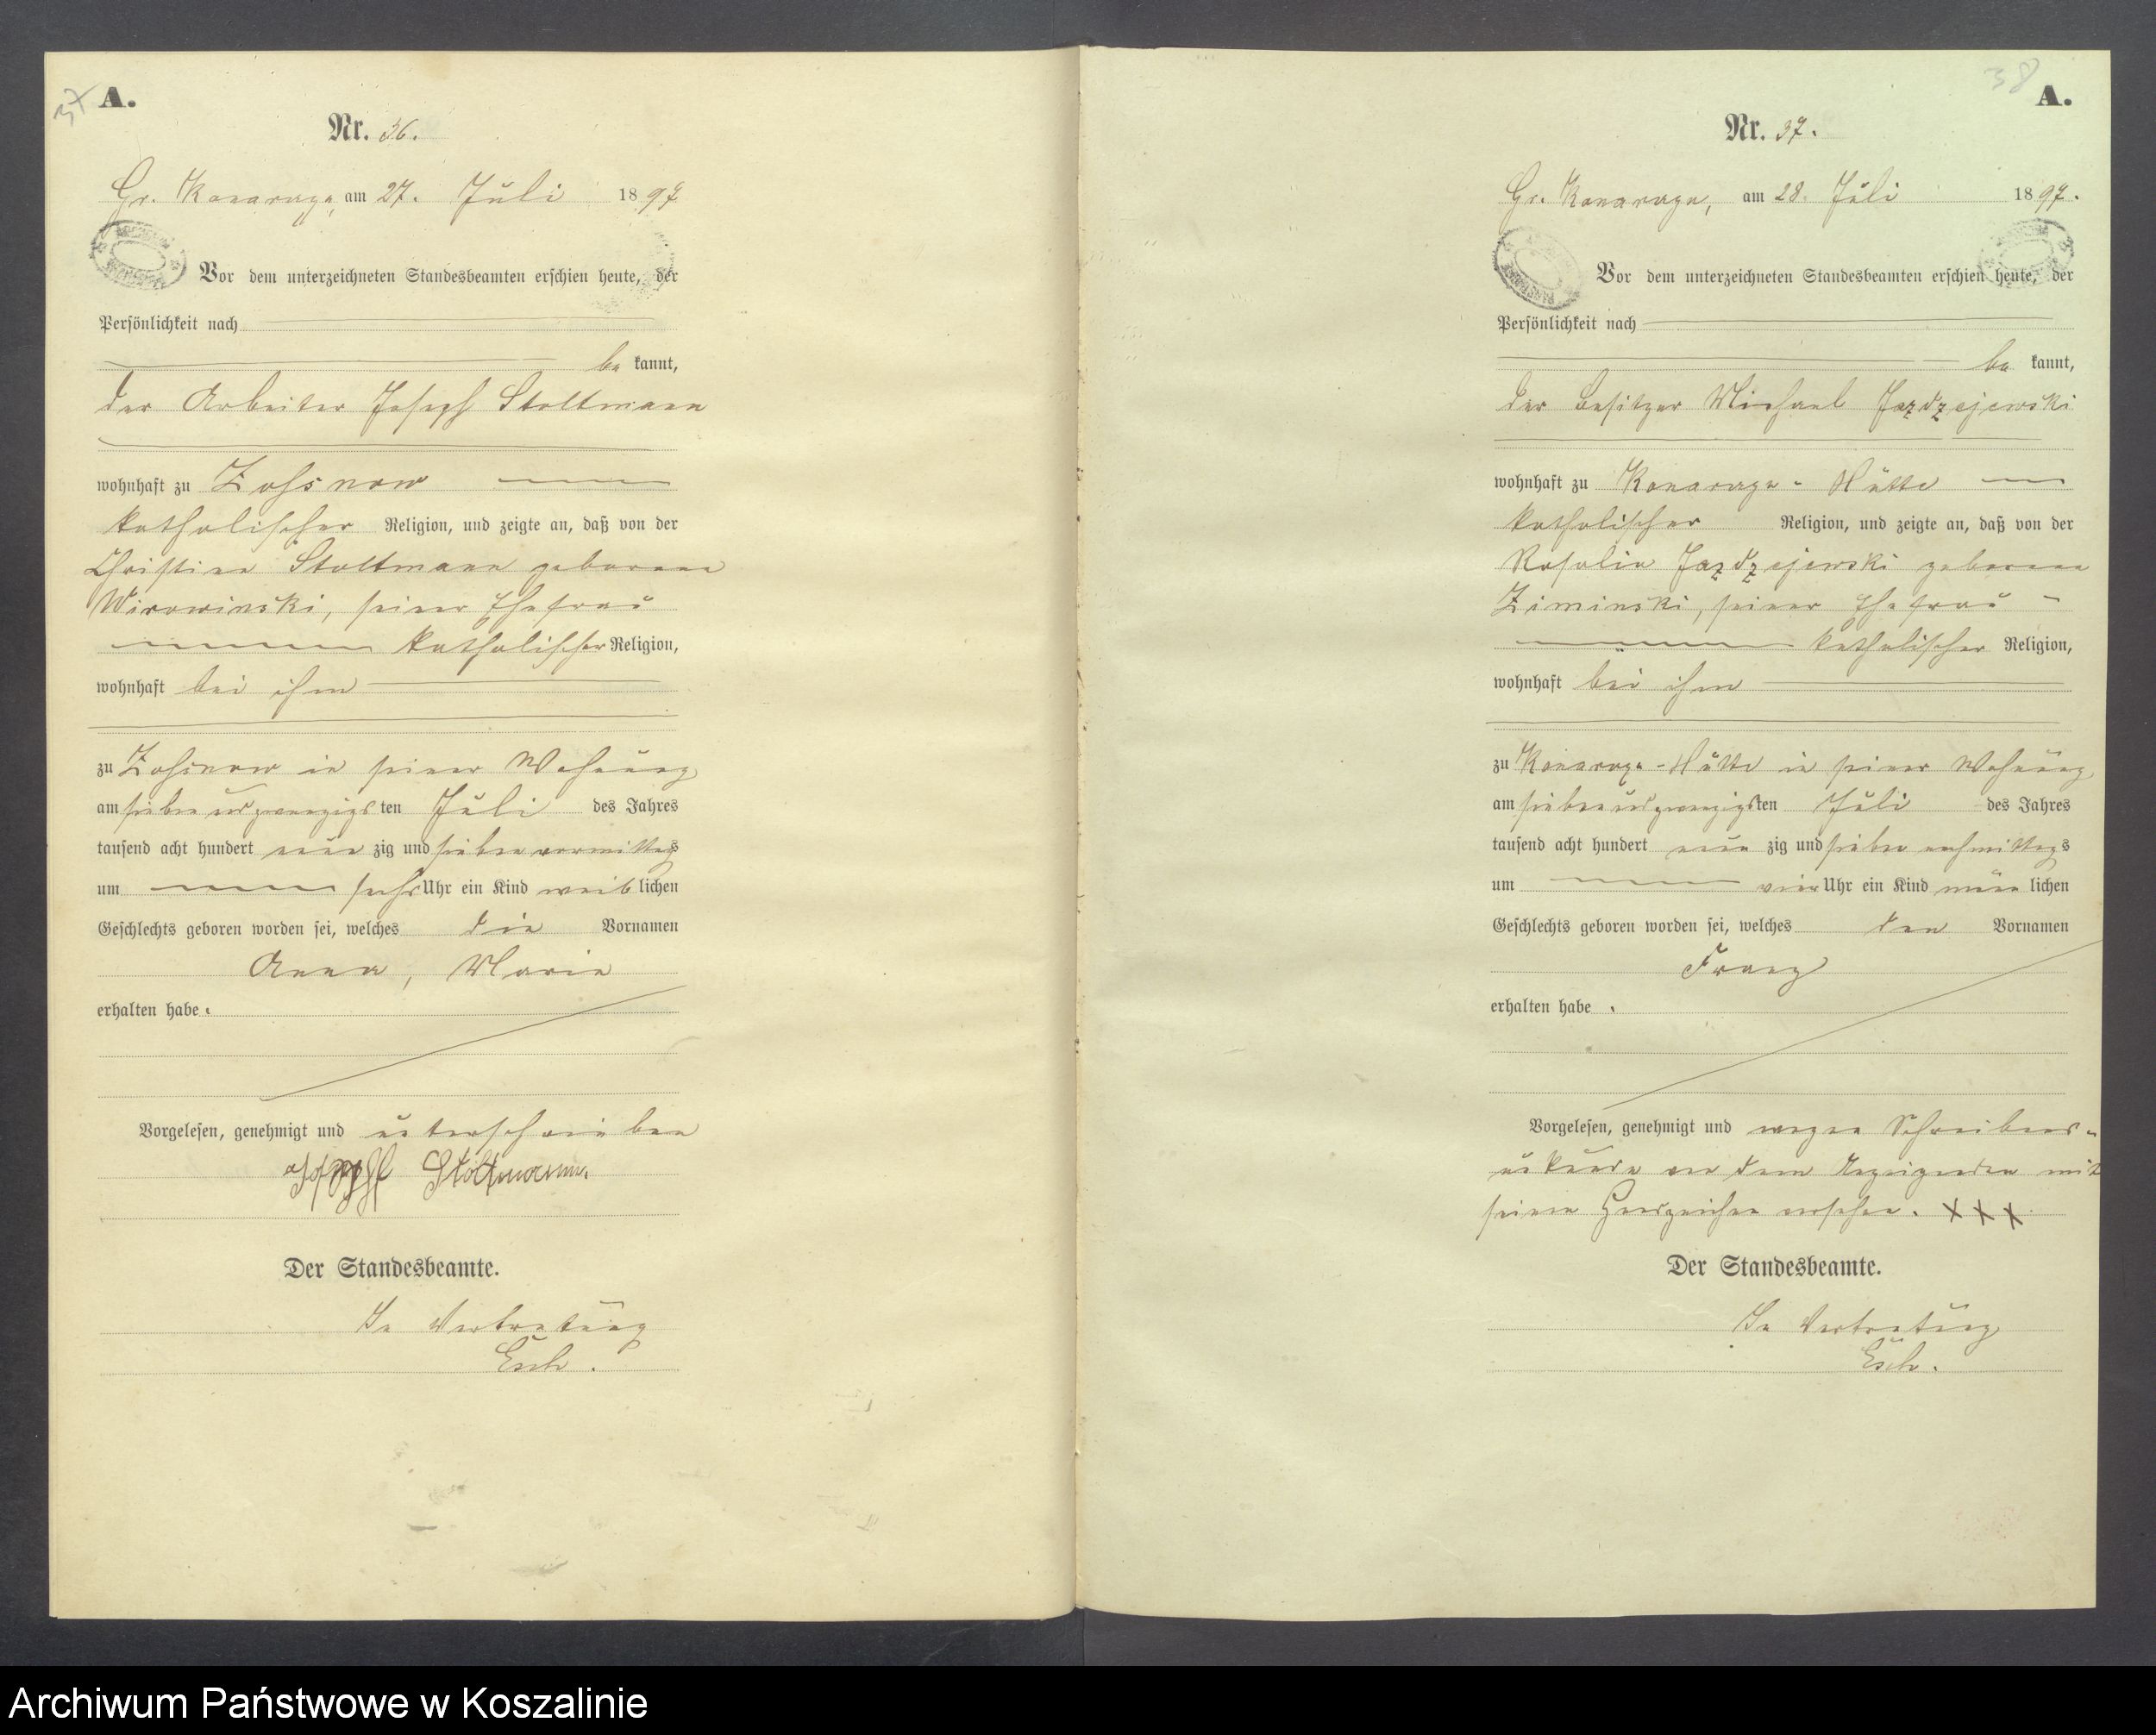 37
A.
Nr. 36.
Gr. Konarczyn, am 27. Juli 1897
Vor dem unterzeichneten Standesbeamten erschien heute, der
Persönlichkeit nach
be kannt,
der Arbeiter Joseph Stoltmann
wohnhaft zu Zossnow
katholischer Religion, und zeigte an, daß von der
Christine Stoltmann geborene
Wirowinski, seiner Ehefrau
katholischer Religion,
wohnhaft bei ihm
zu Zossnow in seiner Wohnung
am siebenundzwanzigsten Juli des Jahres
tausend acht hundert neun zig und sieben vormittags
um sechs Uhr ein Kind weib lichen
Geschlechts geboren worden sei, welches die Vornamen
Anna, Marie
erhalten habe.
Vorgelesen, genehmigt und unterschrieben
Joseph Stoltmann.
Der Standesbeamte.
In Vertretung
Esch.
38
A.
Nr. 37.
Gr. Konarczyn, am 28. Juli 1897.
Vor dem unterzeichneten Standesbeamten erschien heute, der
Persönlichkeit nach
be kannt,
der Besitzer Michael Jazdzejewski
wohnhaft zu Konarczyn-Hütte
katholischer Religion, und zeigte an, daß von der
Rosalie Jazdzejewski geborene
Ziminski, seiner Ehefrau
katholischer Religion,
wohnhaft bei ihm
zu Konarczyn-Hütte in seiner Wohnung
am siebenundzwanzigsten Juli des Jahres
tausend acht hundert neun zig und sieben nachmittags
um vier Uhr ein Kind männ lichen
Geschlechts geboren worden sei, welches den Vornamen
Franz
erhalten habe.
Vorgelesen, genehmigt und wegen Schreibens-
unkunde von dem Anzeigenden mit
seinen Handzeichen versehen. XXX
Der Standesbeamte.
In Vertretung
Esch.
Archiwum Państwowe w Koszalinie